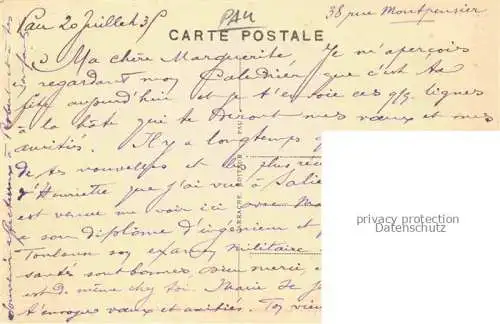 Pau 20 Juillet 35
PAU
38 rue Montpensier
CARTE POSTALE
Ma chère Marguerite, Je m'aperçois
en regardant mon Calendrier, que c'est ta
fête aujourd'hui et je t'envoie ces qq. lignes
à la hâte qui te diront mes vœux et mes
amitiés. Il y a longtemps
de tes nouvelles et les plus
d'Henriette que j'ai vue à Salie
est venue me voir ici avec
son diplôme d'ingénieur et
Toulouse son examen militaire
santé sont bonnes, Dieu merci,
est de même chez toi. Marie de
t'envoyer vœux et amitiés. Ton
CARRACHE, EDITEUR, PAU
Souvenir affectueux à Robert et à tes
privacy protection
Datenschutz